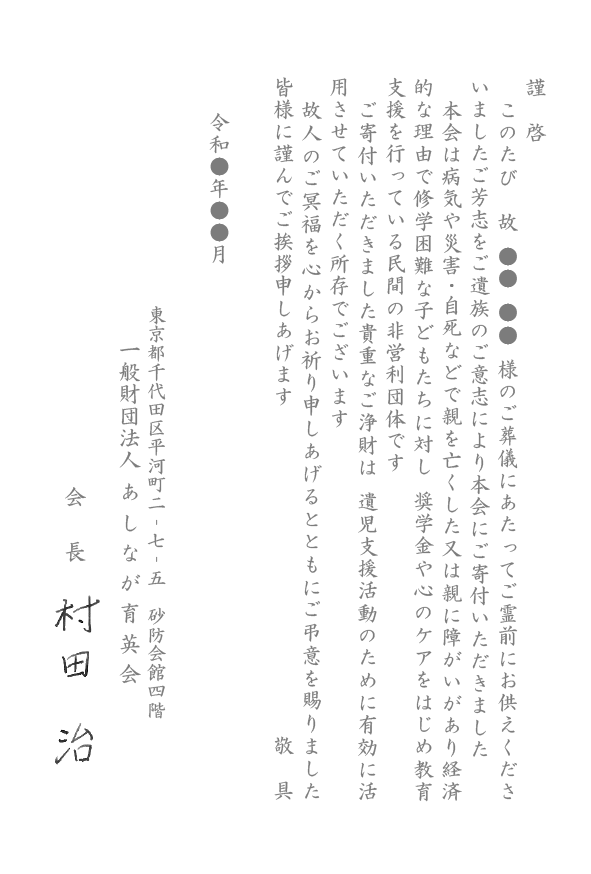 謹啓
このたび 故 ●● ●● 様のご葬儀にあたってご霊前にお供えくださ
いましたご芳志をご遺族のご意志により本会にご寄付いただきました
本会は病気や災害・自死などで親を亡くした又は親に障がいがあり経済
的な理由で修学困難な子どもたちに対し 奨学金や心のケアをはじめ教育
支援を行っている民間の非営利団体です
ご寄付いただきました貴重なご浄財は 遺児支援活動のために有効に活
用させていただく所存でございます
故人のご冥福を心からお祈り申しあげるとともにご弔意を賜りました
皆様に謹んでご挨拶申しあげます 敬具
令和●年●●月
東京都千代田区平河町二-七-五 砂防会館四階
一般財団法人 あしなが育英会
会長 村田 治